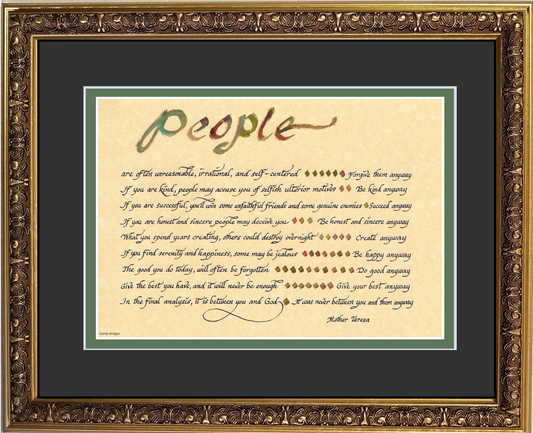 People
are often unreasonable, irrational, and self-centered Forgive them anyway
If you are kind, people may accuse you of selfish ulterior motives Be kind anyway
If you are successful, you'll win some unfaithful friends and some genuine enemies Succeed anyway
If you are honest and sincere people may deceive you Be honest and sincere anyway
What you spend years creating, others could destroy overnight Create anyway
If you find serenity and happiness, some may be jealous Be happy anyway
The good you do today, will often be forgotten Do good anyway
Give the best you have, and it will never be enough Give your best anyway
In the final analysis, it is between you and God It was never between you and them anyway
Mother Teresa